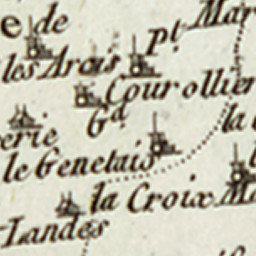 e de
pt. Mar
les Arcis
Courollier
Gd.
la
erie
le Genetais
la Croix Ma
Landes